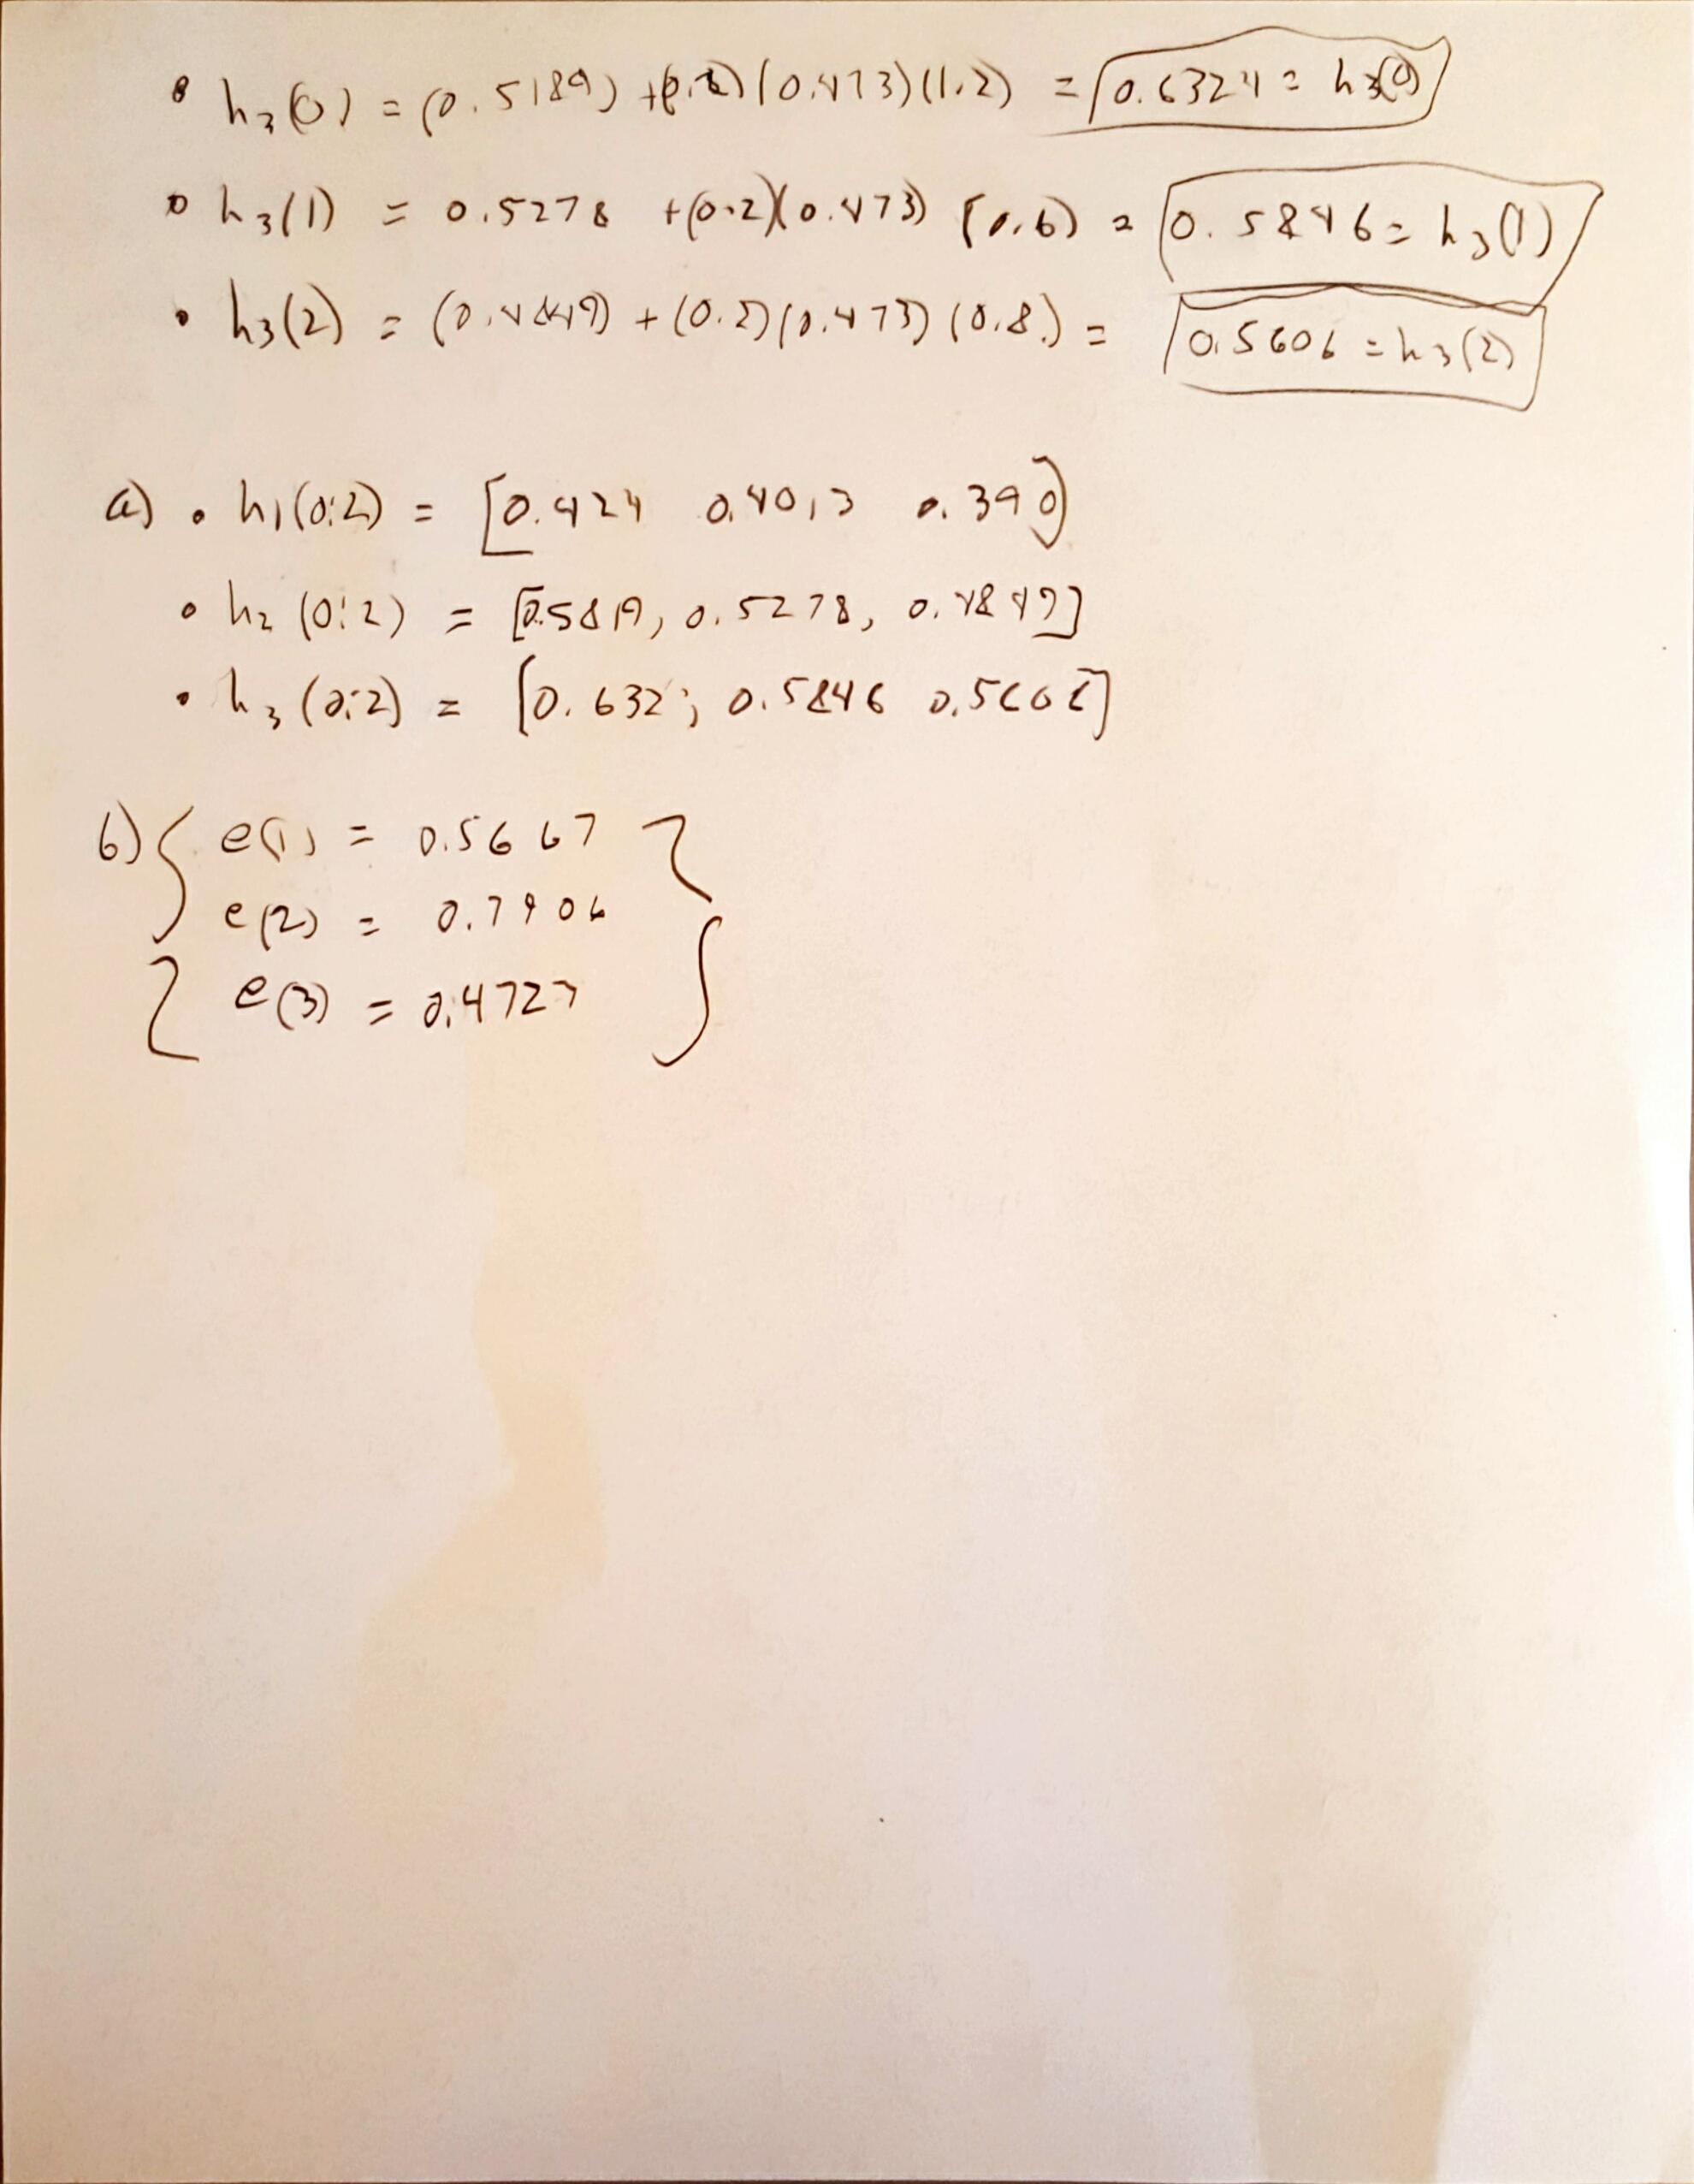 • h₃(0) = (0.5189) +(0.2)(0.473)(1.2) = 0.6324 = h₃(0)
• h₃(1) = 0.5278 +(0.2)(0.473) (0.6) = 0.5846 = h₃(1)
• h₃(2) = (0.4849) + (0.2)(0.473) (0.8) = 0.5606 = h₃(2)
a) • h₁(0:2) = [0.424 0.4013 0.390]
• h₂ (0:2) = [0.5819, 0.5278, 0.4849]
• h₃ (0:2) = [0.632; 0.5846 0.5606]
b) { e(1) = 0.5667 }
e(2) = 0.7906
{ e(3) = 0.4727 }